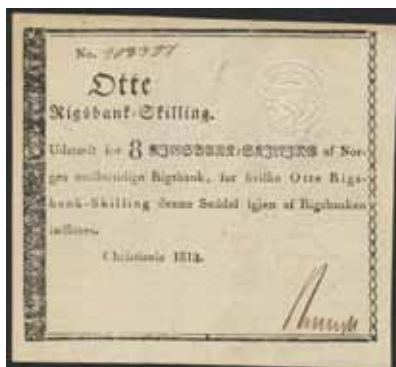 No.
Otte
Rigsbank-Skilling.
Udstædt for 8 RIGSBANK-SKILLING af Nor-
ges midlertidige Rigsbank, for hvilke Otte Rigs-
bank-Skilling denne Seddel igjen af Rigsbanken
indløses.
Christiania